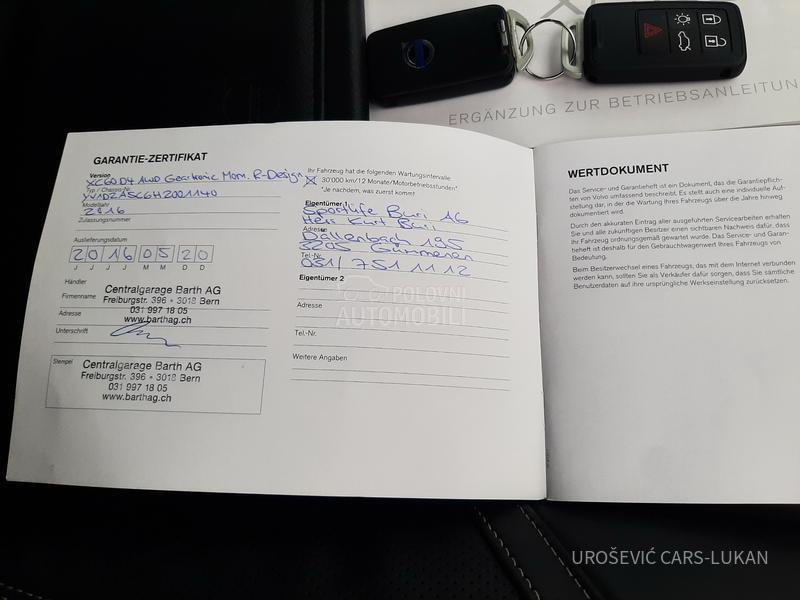 ERGÄNZUNG ZUR BETRIEBSANLEITUN
GARANTIE-ZERTIFIKAT
Version
XC60 D4 AWD Geartronic Mom. R-Design
Typ / Chassis-Nr.
YV1DZA5C6H2001140
Modelljahr
2016
Zulassungsnummer
Auslieferungsdatum
2 0 1 6 0 5 2 0
J J J J M M D D
Händler
Firmenname
Centralgarage Barth AG
Freiburgstr. 396 • 3018 Bern
Adresse
031 997 18 05
www.barthag.ch
Unterschrift
Stempel
Centralgarage Barth AG
Freiburgstr. 396 • 3018 Bern
031 997 18 05
www.barthag.ch
Ihr Fahrzeug hat die folgenden Wartungsintervalle
30'000 km/12 Monate/Motorbetriebsstunden*
*Je nachdem, was zuerst kommt
Eigentümer 1
Sportlife Büri AG
Herr Kurt Büri
Adresse
Dällenbach 195
3205 Gümmenen
Tel.-Nr.
031/ 751 11 12
Eigentümer 2
Adresse
Tel.-Nr.
Weitere Angaben
POLOVNI
AUTOMOBILI
WERTDOKUMENT
Das Service- und Garantieheft ist ein Dokument, das die Garantiepflich-
ten von Volvo umfassend beschreibt. Es stellt auch eine individuelle Auf-
stellung dar, in der die Wartung Ihres Fahrzeugs über die Jahre hinweg
dokumentiert wird.
Durch den akkuraten Eintrag aller ausgeführten Servicearbeiten erhalten
Sie und alle zukünftigen Besitzer einen sichtbaren Nachweis dafür, dass
Ihr Fahrzeug ordnungsgemäß gewartet wurde. Das Service- und Garan-
tieheft ist deshalb für den Gebrauchtwagenwert Ihres Fahrzeugs von
Bedeutung.
Beim Besitzerwechsel eines Fahrzeugs, das mit dem Internet verbunden
werden kann, sollten Sie als Verkäufer dafür sorgen, dass Sie sämtliche
Benutzerdaten auf ihre ursprüngliche Werkseinstellung zurücksetzen.
UROŠEVIĆ CARS-LUKAN